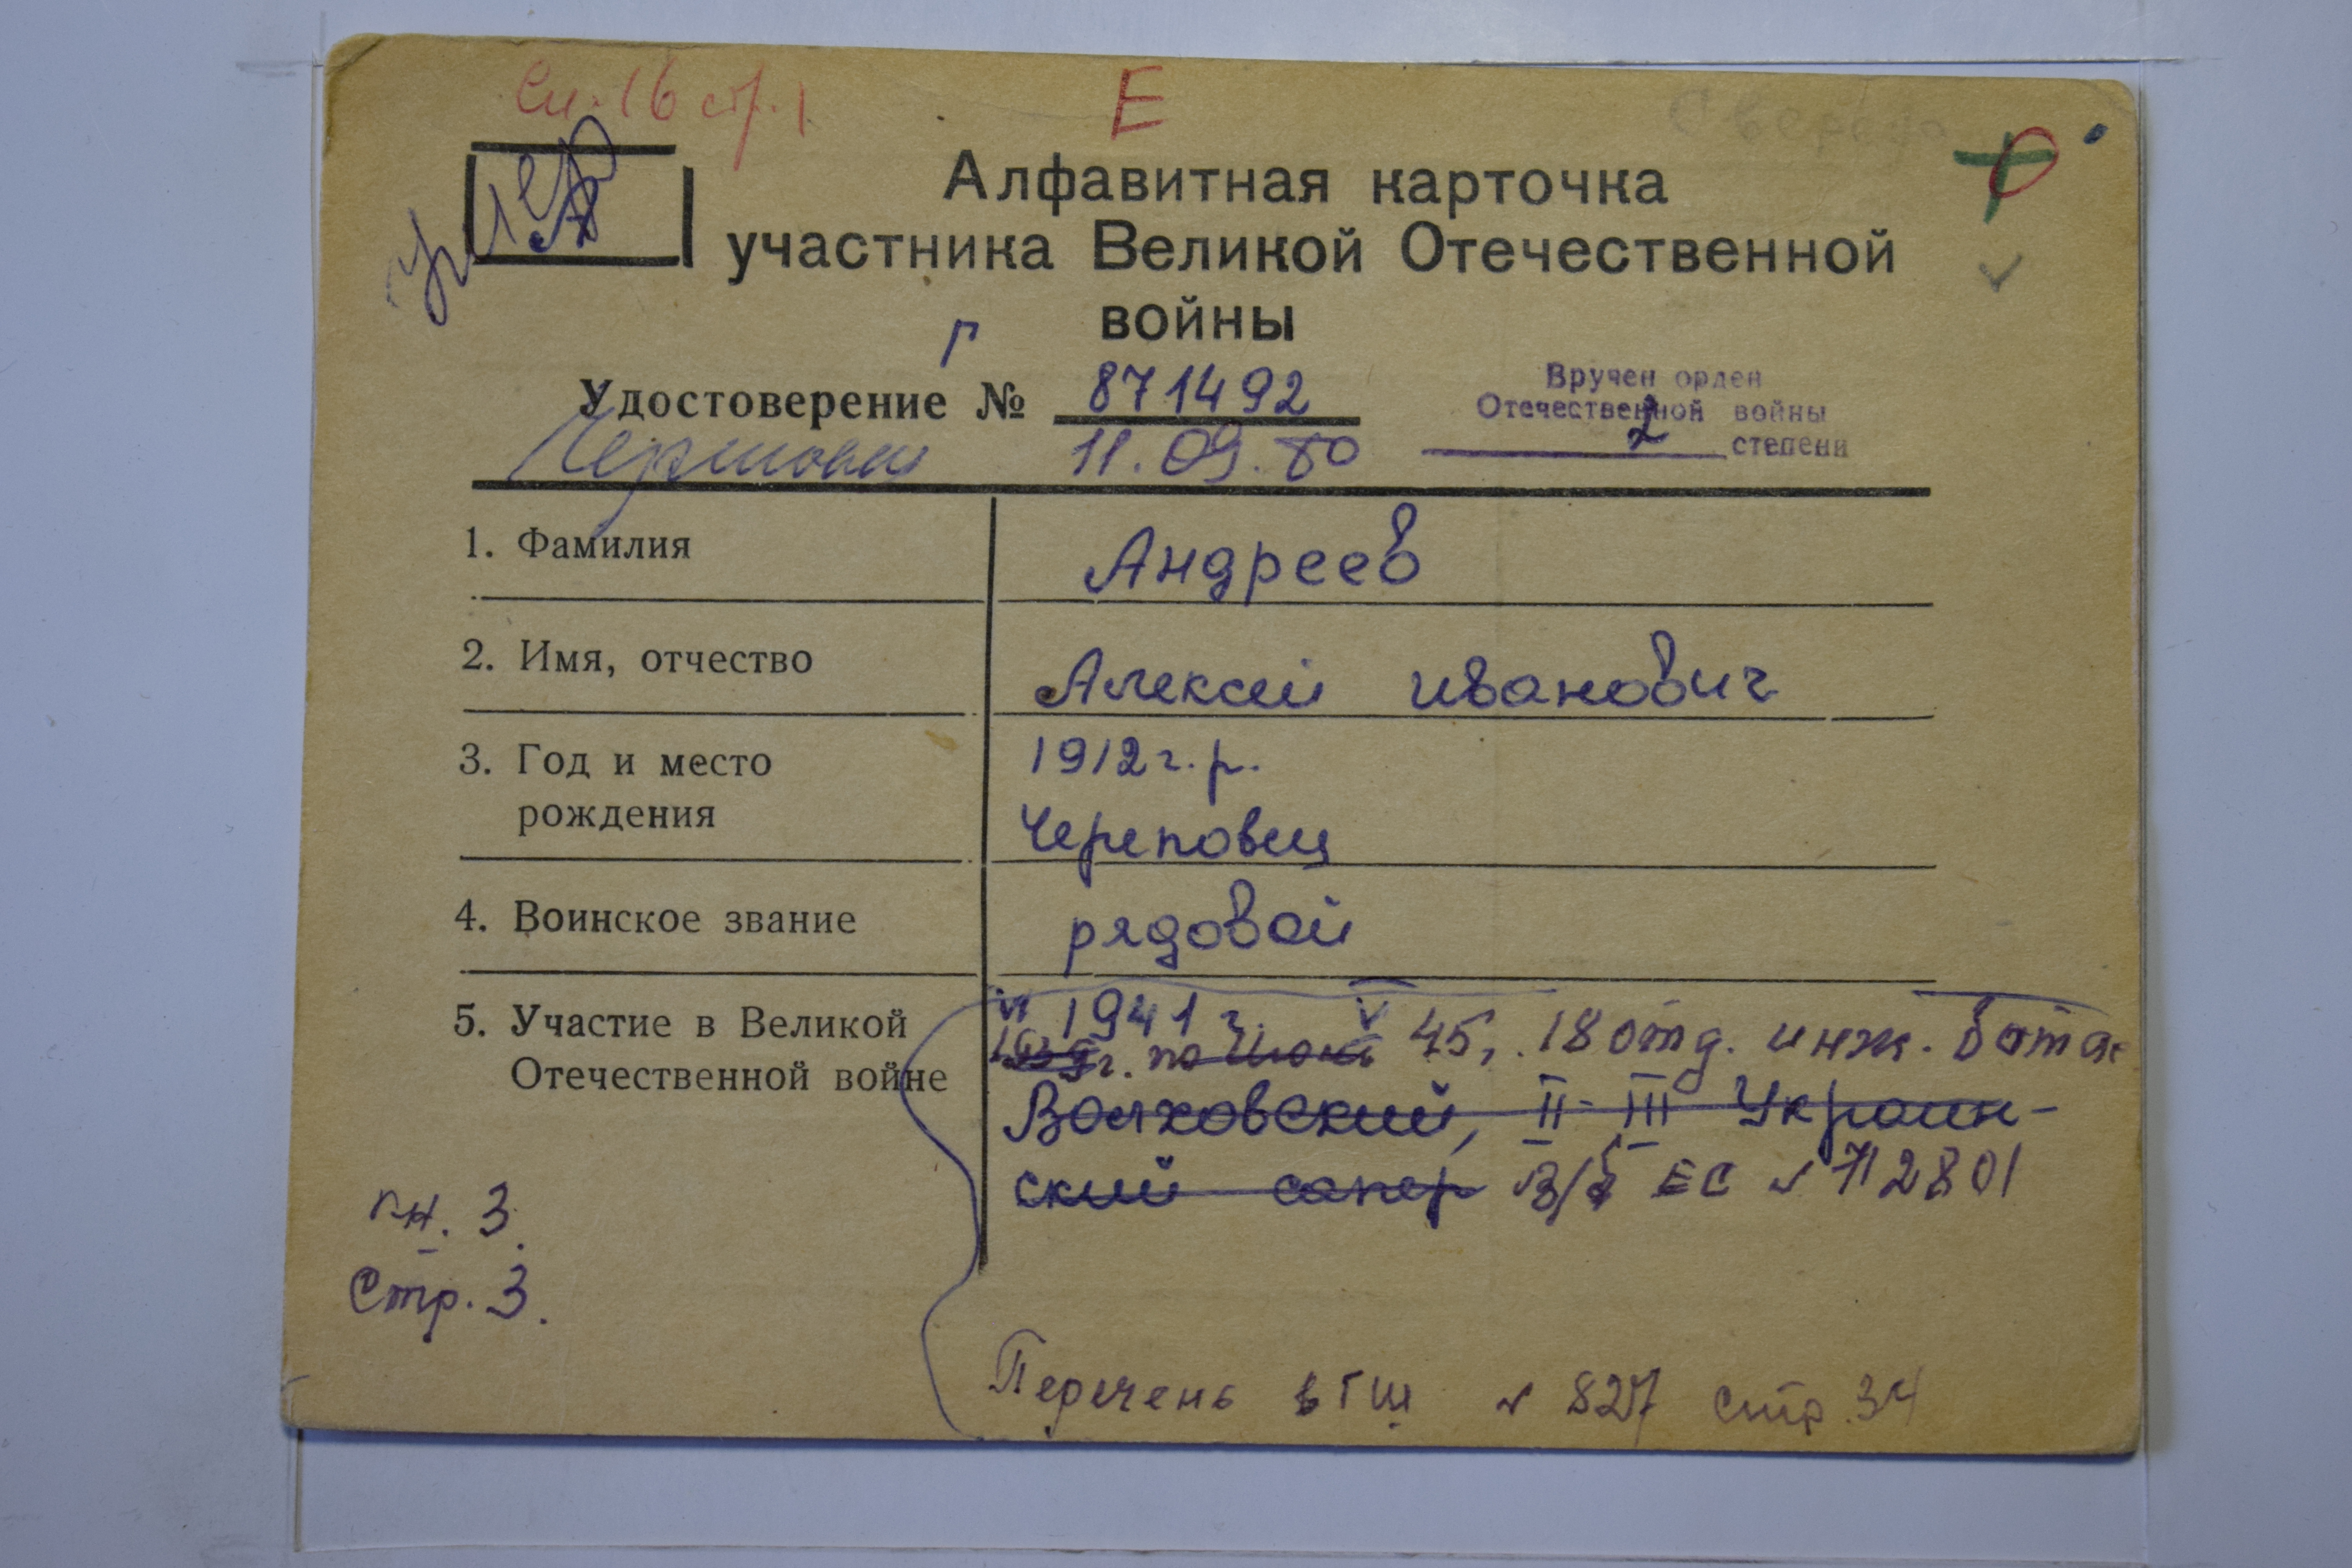 сп. 16 стр. 1
Е
Алфавитная карточка
участника Великой Отечественной
войны
Г
Удостоверение № 871492
11.09.80
Вручен орден
Отечественной войны
2 степени
1. Фамилия Андреев
2. Имя, отчество Алексей иванович
3. Год и место рождения 1912 г.р.
Череповец
4. Воинское звание рядовой
5. Участие в Великой Отечественной войне VI 1941 г. V
г. по 45г. 18 отд. инж. бат
Волховский, II-III Украин-
ский сапер В/б ЕС № 712801
кн. 3.
Стр. 3.
Перечень в ГШ № 827 стр. 34